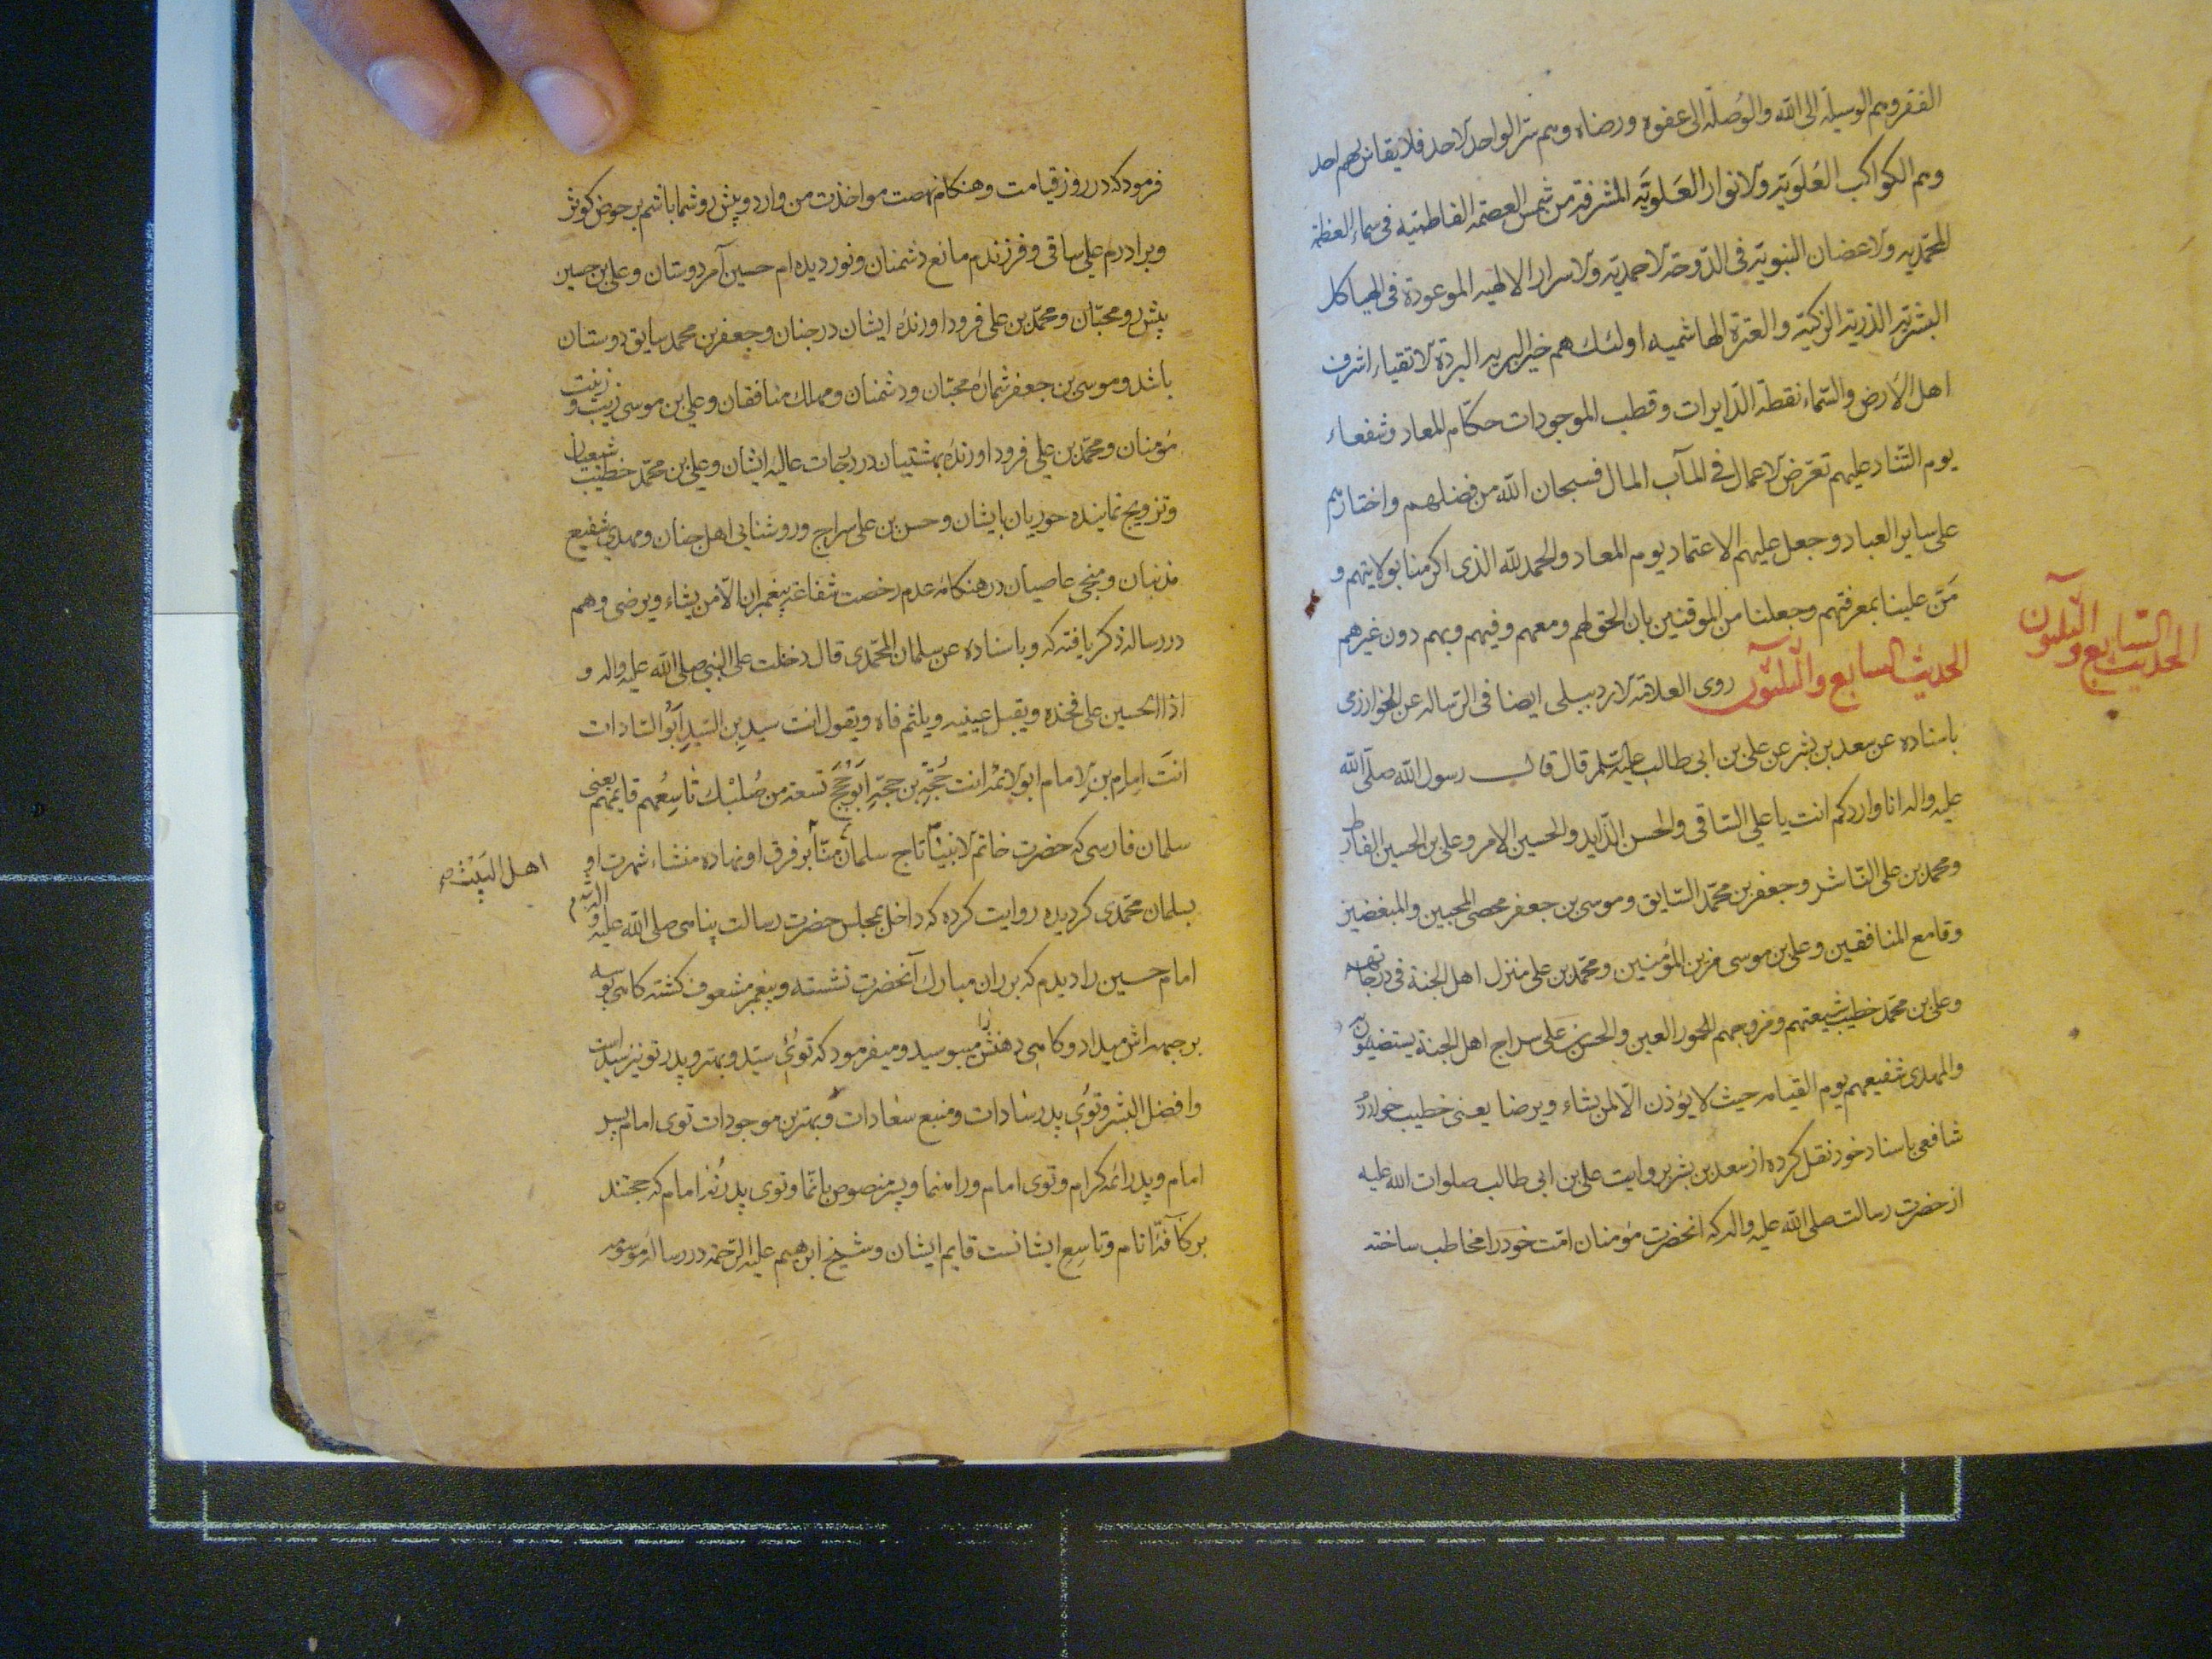 الفقر وهم الوسیلة الی الله والوُصلة الی عفوه ورضاه وهم سرّ الواحد لاحد فلا یقاس بهم احد
وهم الکواکب العُلَویّه ولانوار العَلویَّه المشرقة من شمس العصمة الفاطمیه فی سماء العظمة
المحمّدیه ولاغصان النبویّه فی الدّوحة لاحمدیّه ولاسرار الالهیه الموعودة فی الهیاکل
البشریّه الذریّه الزکیّه والعترة الهاشمیه اولئک هم خیر البریه البررة لاتقیاء اشرف
اهل الارض والسّماء نقطة الدّایرات وقطب الموجودات حکّام المعاد وشفعاء
یوم التناد علیهم تعرض لاعمال فی المآب المال فسبحان الله من فضلهم واختارهم
علی سایر العباد وجعل علیهم الاعتماد یوم المعاد والحمد لله الذی اکرمنا بولایتهم و
مَنّ علینا بمعرفتهم وجعلنا من الموقنین بان الحق لهم ومعهم وفیهم وبهم دون غیرهم
الحدیث السابع والثلثون روی العلامة لاردبیلی ایضا فی الرساله عن الخوارزمی
الحدیث السّابع والثّلثون
باسناده عن سعد بن بشر عن علی بن ابی طالب علیه السلم قال قال رسول الله صلّی الله
علیه واله انا واردکم انت یا علی السّاقی والحسن الذّاید والحسین الامر وعلی بن الحسین الفارط
ومحمد بن علی النّاشر وجعفر بن محمّد السّایق وموسی بن جعفر محصی المحبین والمبغضین
وقامع المنافقین وعلی بن موسی مزین المؤمنین ومحمّد بن علی منزل اهل الجنة فی درجاتهم
وعلی بن محمّد خطیب شیعتهم ومزوجهم الحور العین والحسن بن علی سراج اهل الجنة یستضیؤن به
والمهدی شفیعهم یوم القیامه حیث لا یؤذن الّا لمن یشاء ویرضا یعنی خطیب خوارزم
شافعی باسناد خود نقل کرده از سعد بن بشر بروایت علی بن ابی طالب صلوات الله علیه
از حضرت رسالت صلی الله علیه واله که انحضرت مؤمنان امّت خود را مخاطب ساخته
فرمود که در روز قیامت وهنکام مواخذت من وارد وپیش رو شما باشم بر حوض کوثر
وبرادرم علی ساقی وفرزندم مانع دشمنان ونور دیده ام حسین آمر دوستان وعلی بن حسین
پیش رو محبّان ومحمّد بن علی فرود اورنده ایشان در جنان وجعفر بن محمد سایق دوستان
باشد وموسی بن جعفر شماره محبّان ودشمنان ومهلک منافقان وعلی بن موسی زیب و زینت
مؤمنان ومحمّد بن علی فرود اورنده بهشتیان در درجات عالیه ایشان وعلی بن محمّد خطیب شیعیان
وتزویج نماینده حوریان بایشان وحسن بن علی سراج وروشنایی اهل جنان ومهدی شفیع
مذنبان ومنجی عاصیان در هنکامه عدم رخصت شفاعة پیغمبران الّا من یشاء ویرضی وهم
در رساله ذکر یافته که وباسناده عن سلمان المحمّدی قال دخلت علی النبی صلی الله علیه واله و
اذا الحسین علی فخذه ویقبل عینیه ویلثم فاه ویقول انت سید بن السّیدِ ابَوُ السّادات
انتَ اِمام بن لامام ابو لائمّه انت حُجّة بن حجّةِ ابَوُ حُجَج تسعة من صُلبِک تاسِعُهم قایمهم یعنی
سلمان فارسی که حضرت خاتم لانبیاء تاج سلمان منّا بر فرق او نهاده منشاء شهرت او
اهل البَیْت صح
بسلمان محمّدی کردیده روایت کرده که داخل مجلس حضرت رسالت پناهی صلی الله علیه و اله
امام حسین را دیدم که بر ران مبارک آنحضرت نشسته وپیغمبر مشعوف کشته کاهی بوسه
بر جبهه اش میداد وکاهی دهنش را میبوسید ومیفرمود که توئی سیّد وبهتر وپدر تو نیز سید است
وافضل البشر وتوئی پدر سادات ومنبع سعادات وبهترین موجودات توی امام پسر
امام وپدر ائمه کرام وتوی امام وراهنما وپسر منصوص باتّما وتوی پدر نُه امام که حجّتند
بر کافّهٔ انام وتاسِعِ ایشانست قایم ایشان وشیخ ابرهیم علیه الرّحمه در رساله موسومه